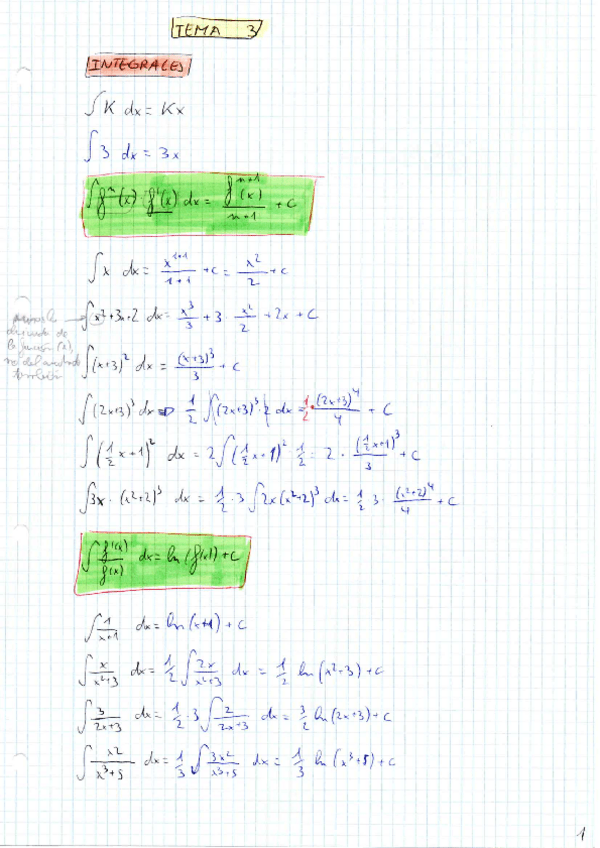 TEMA 3
INTEGRALES
∫ K dx = Kx
∫ 3 dx = 3x
∫ fⁿ(x) · f'(x) dx = fⁿ⁺¹(x) / n+1 + C
∫ x dx = x¹⁺¹ / 1+1 + C = x² / 2 + C
∫ x² + 3x + 2 dx = x³/3 + 3 · x²/2 + 2x + C
de
la función (x),
también
∫ (x+3)² dx = (x+3)³ / 3 + C
∫ (2x+3)³ dx ⇒ 1/2 ∫ (2x+3)³ · 2 dx = 1/2 · (2x+3)⁴ / 4 + C
∫ (1/2 x+1)² dx = 2 ∫ (1/2 x+1)² · 1/2 = 2 · (1/2 x+1)³ / 3 + C
∫ 3x · (x²+2)³ dx = 1/2 · 3 ∫ 2x (x²+2)³ dx = 1/2 · 3 · (x²+2)⁴ / 4 + C
∫ f'(x) / f(x) dx = ln (f(x)) + C
∫ 1 / x+1 dx = ln (x+1) + C
∫ x / x²+3 dx = 1/2 ∫ 2x / x²+3 dx = 1/2 ln (x²+3) + C
∫ 3 / 2x+3 dx = 1/2 · 3 ∫ 2 / 2x+3 dx = 3/2 ln (2x+3) + C
∫ x2 / x³+5 dx = 1/3 ∫ 3x2 / x³+5 dx = 1/3 ln (x³+5) + C
1